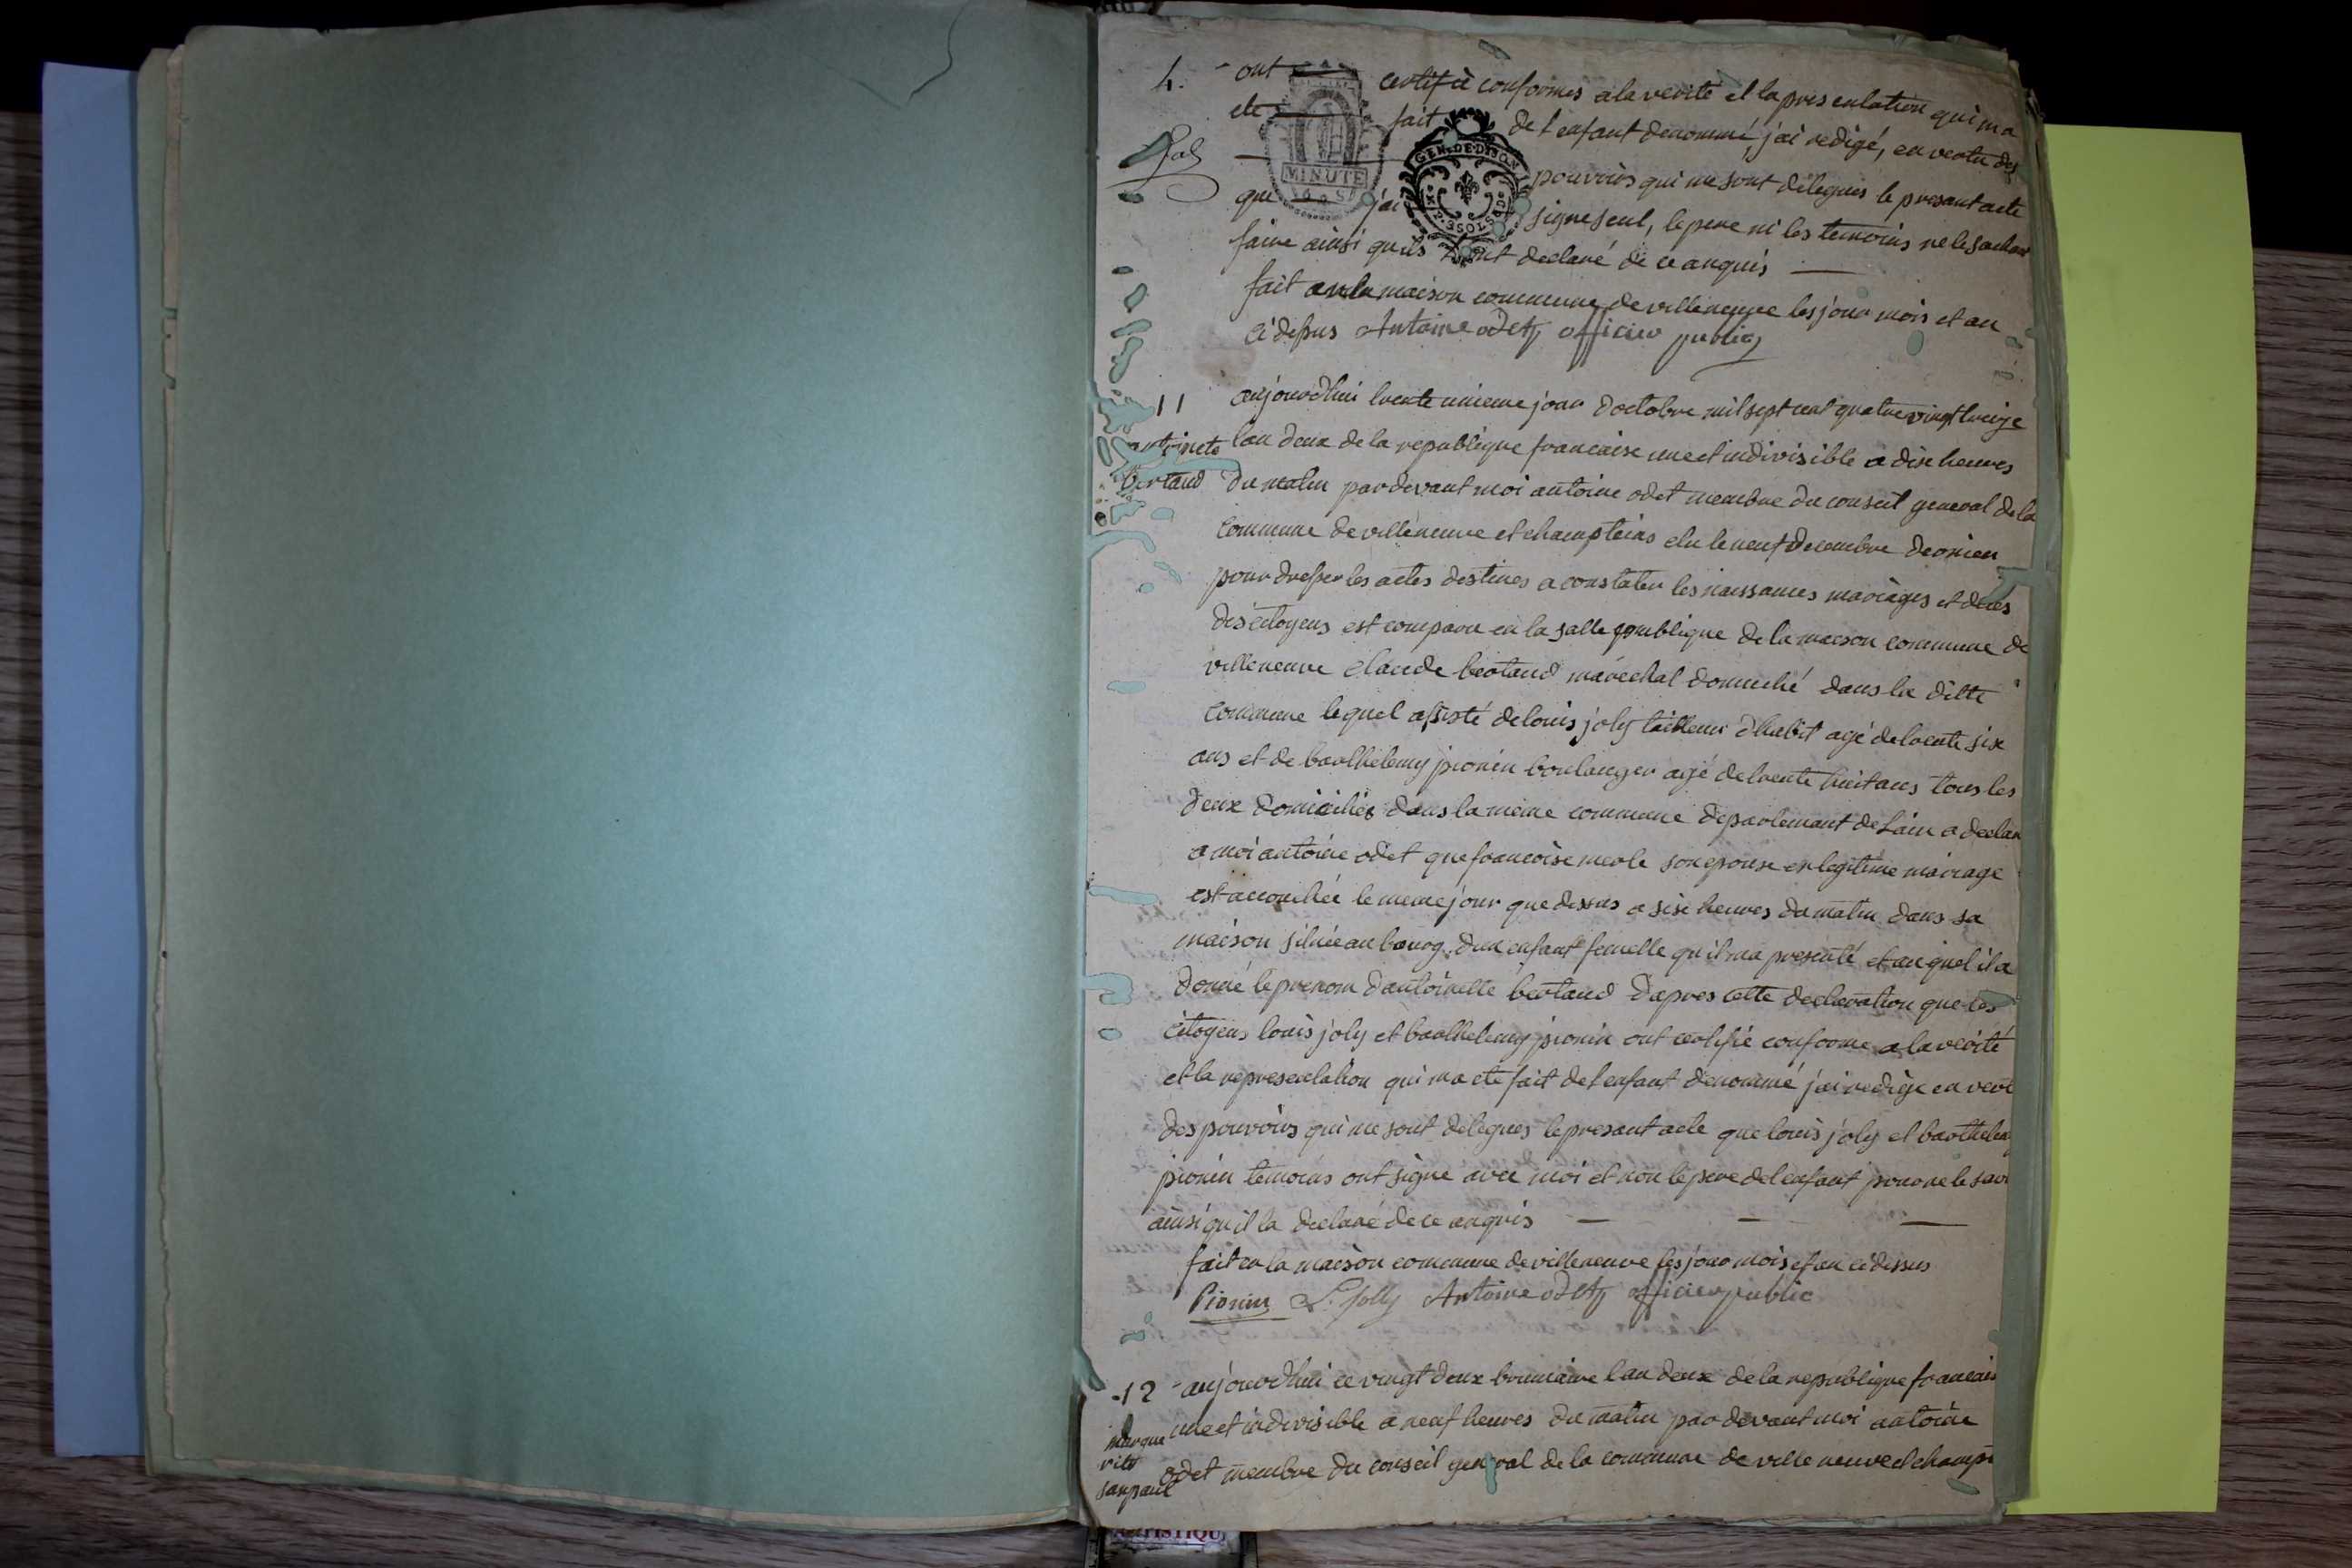 4.
ont certifié conformes a la verité et la presentation qui m'a
ete fait de l'enfant denommé, j'ai redigé, en vertu des
MINUTE
GEN. DE DIJON
pouvoirs qui me sont délegués le presant acte
que j'ai signe seul, le pere ni les temoins ne le sachant
faire ainsi qu'ils l'ont declaré de ce anquis
fait en la maison commune de villeneuve les jour mois et an
ci depus Antoine odet officier public
11
antoinete
Bertaud
aujourdhui trente unieme jour doctobre mil sept cent quatre vingt treize
lan deux de la republique francaise une et indivisible a dise heures
du matin par devant moi antoine odet membre du conseil general de la
commune de villeneuve et champteins elu le neuf decembre dernier
pour dresser les actes destines a constater les naissances mariages et deces
des citoyens est comparu en la salle publique de la maison commune de
villeneuve claude bertaud maréchal domicilié dans la ditte
commune lequel assisté de louis joly tailleur d'habit agé de trente six
ans et de barthelemy pionin boulanger agé de trente huit ans tous les
deux domiciliés dans la même commune departement de Lain a declar
a moi antoine odet que francoise merle son epouse en legitime mariage
est accouchée le meme jour que dessus a sise heures du matin dans sa
maison située au bourg dun enfant femelle qu'il ma presenté et auquel il a
donné le prenom dantoinette bertaud dapres cette declaration que les
citoyens louis joly et barthelemy pionin ont certifié conforme a la verité
et la representation qui ma ete fait de l'enfant denommé j'ai redigé en vert
des pouvoirs qui me sont delegues le presant acte que louis joly et barthelem
pionin temoins ont signe avec moi et non le pere de lenfant pour ne le savo
ainsi qu'il la declaré de ce anquis
fait en la maison commune de villeneuve les jour mois et an ci dessus
Pionin L. Jolly Antoine odet officier public
12
margue
rite
sanpaul
aujourdhui ce vingt deux brumaire lan deux de la republique francais
une et indivisible a neuf heures du matin par devant moi antoine
odet membre du conseil general de la commune de villeneuve et champt